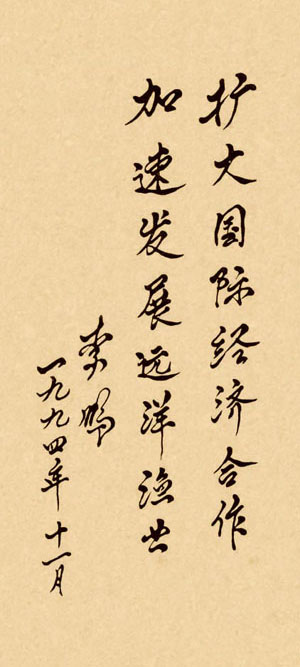 扩大国际经济合作
加速发展远洋渔业
李鹏
一九九四年十一月